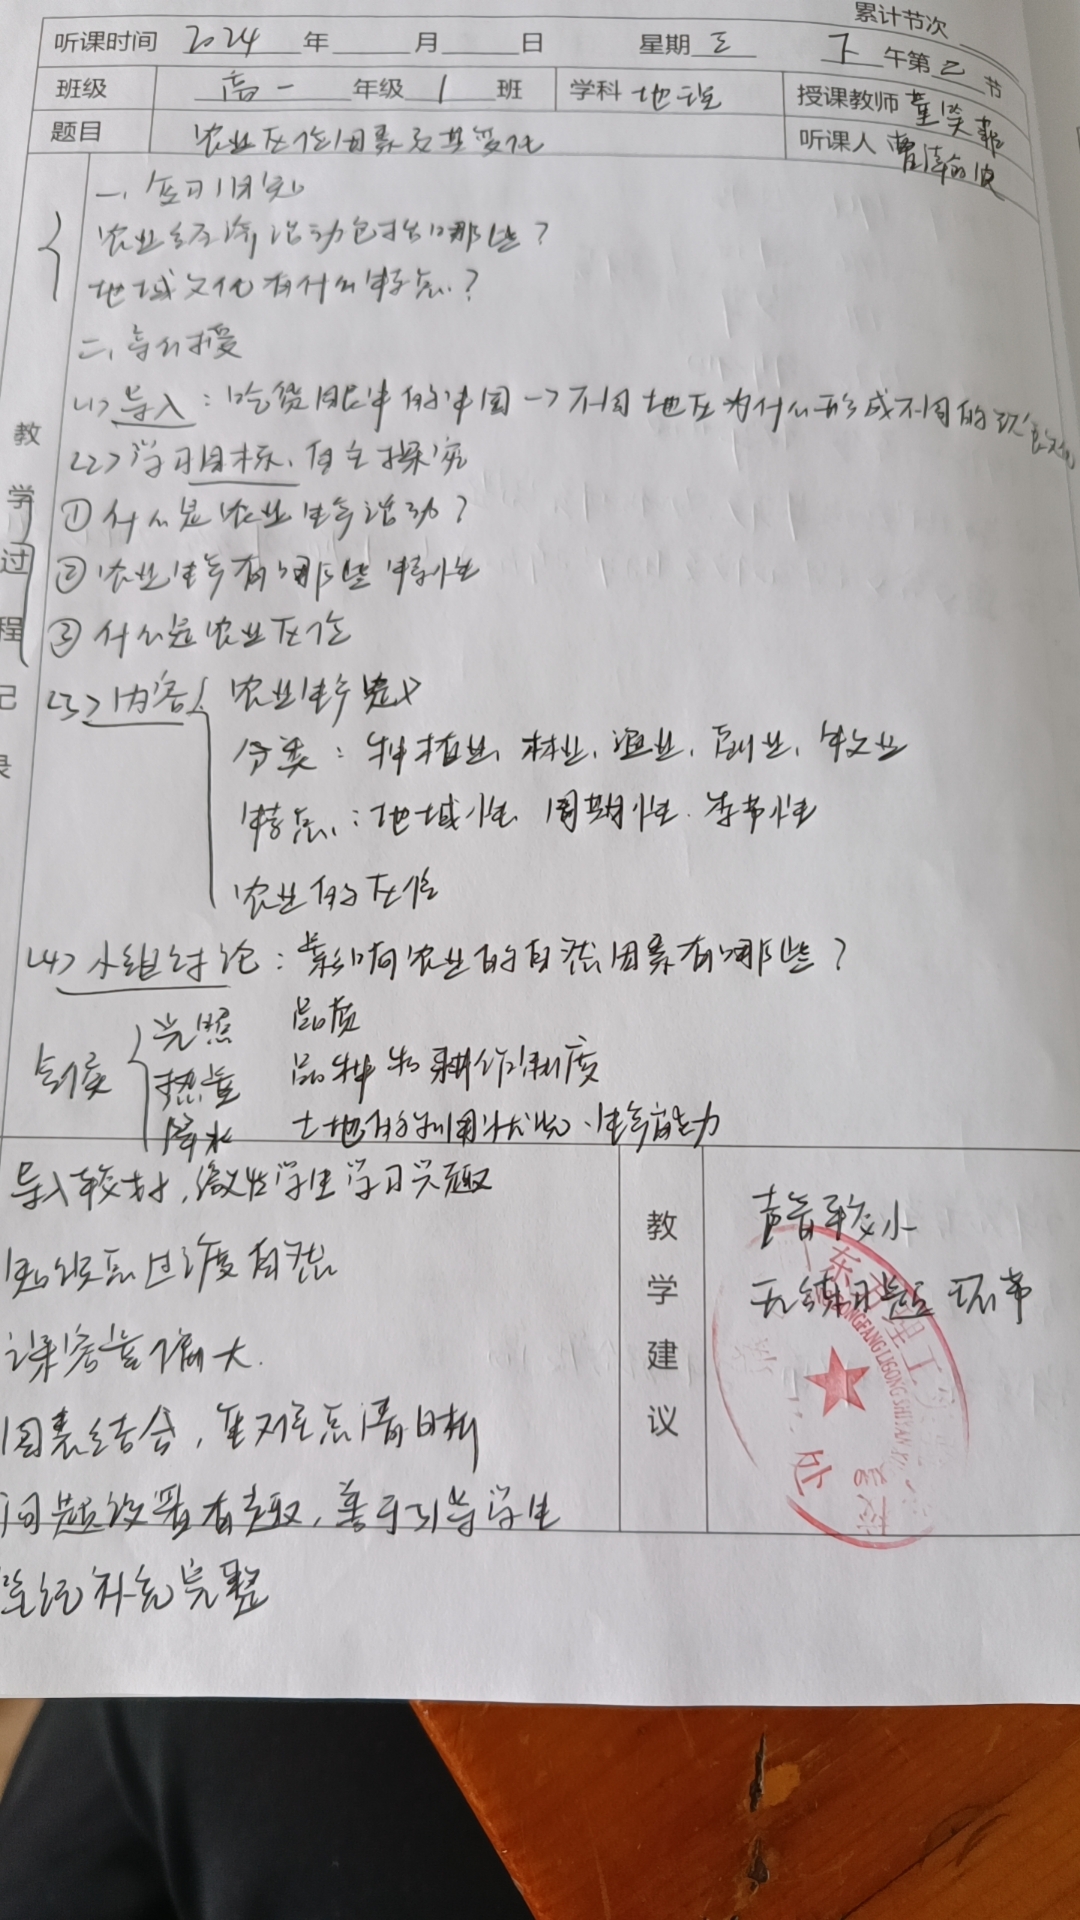 累计节次
听课时间 2024 年 月 日 星期 三 下 午第 二 节
班级 高一 年级 1 班 学科 地理 授课教师 董笑
题目 农业区位因素及其变化 听课人 曹
教学过程记录
一、复习旧知
农业经济活动包括哪些?
地域文化有什么特点?
二、新授
(1) 导入: 吃货眼中的中国→不同地区为什么形成不同的饮食文化
(2) 学习目标、自主探究
① 什么是农业生产活动?
② 农业生产有哪些特性
③ 什么是农业区位
(3) 内容 农业生产定义
分类: 种植业、林业、渔业、副业、牧业
特点: 地域性、周期性、季节性
农业的区位
(4) 小组讨论: 影响农业的自然因素有哪些?
气候
光照 品质
热量 品种与耕作制度
降水 土地的利用状况、生产能力
导入较好,激发学生学习兴趣
知识点过渡自然
课容量偏大.
图表结合,重难点清晰
问题设置有趣,善于引导学生
笔记补充完整
教学建议
声音较小
无练习题环节
东 理工
DONGFANG LIGONG SHIYAN
处